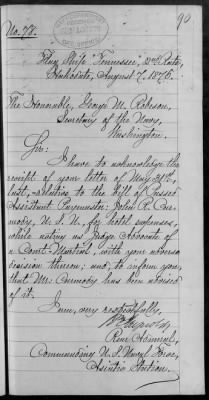 90
No. 78.
Flag Ship "Tennessee" 2nd Rate,
Hakodate, August 7, 1876.
The Honorable, George M. Robeson,
Secretary of the Navy,
Washington.
Sir:
I have to acknowledge the
receipt of your letter of May 31st,
last, relating to the bill of Passed
Assistant Paymaster John R. Car-
mody, U.S.N., for hotel expenses,
while acting as Judge Advocate of
a Court-Martial, with your adverse
decision thereon; and, to inform you,
that Mr. Carmody has been advised
of it.
I am, very respectfully,
Rear Admiral,
Commanding U.S. Naval Force,
Asiatic Station.